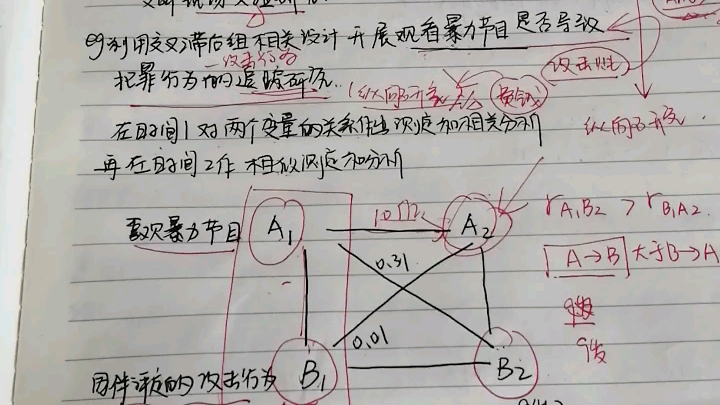 eg利用交叉滞后组相关设计开展观看暴力节目是否导致
攻击行为
犯罪行为的追踪研究.
纵向研究
攻击性
纵向研究
在时间1对两个变量的关系作出测定和相关分析
再在时间2作相似测定和分析
喜欢暴力节目
A₁
10年
A₂
r A₁B₂ > r B₁A₂.
0.31
A→B 大于B→A
0.01
同伴评定的攻击行为
B₁
B₂